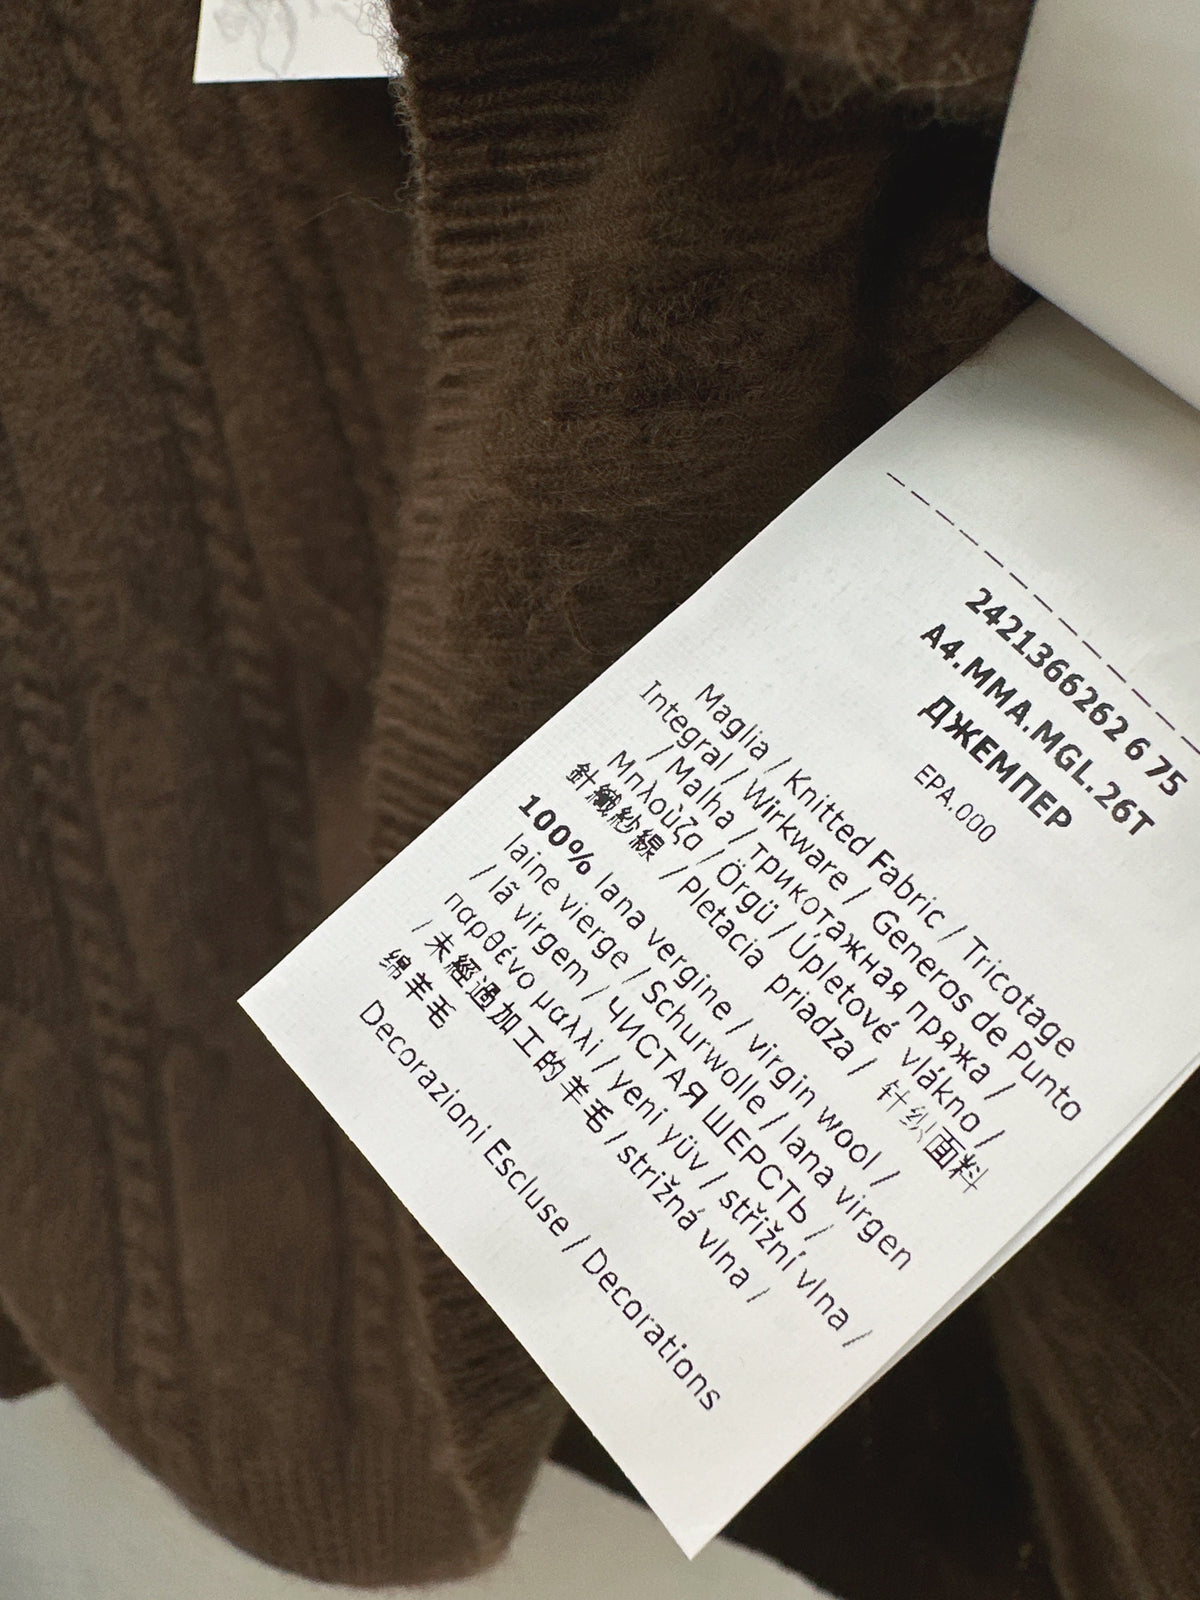 2421366262 6 75
A4.MMA.MGL.26T
ДЖЕМПЕР
EPA.000
Maglia / Knitted Fabric / Tricotage
Integral / Wirkware / Generos de Punto
/ Malha / Трикотажная пряжа /
Μπλούζα / Örgü / Úpletové vlákno /
針織紗線 / Pletacia priadza / 针织面料
100% lana vergine / virgin wool /
laine vierge / Schurwolle / lana virgen
/ lã virgem / ЧИСТАЯ ШЕРСТЬ /
παρθένο μαλλι / yeni yüv / střižní vlna /
/ 未經過加工的羊毛 / strižná vlna /
绵羊毛
Decorazioni Escluse / Decorations